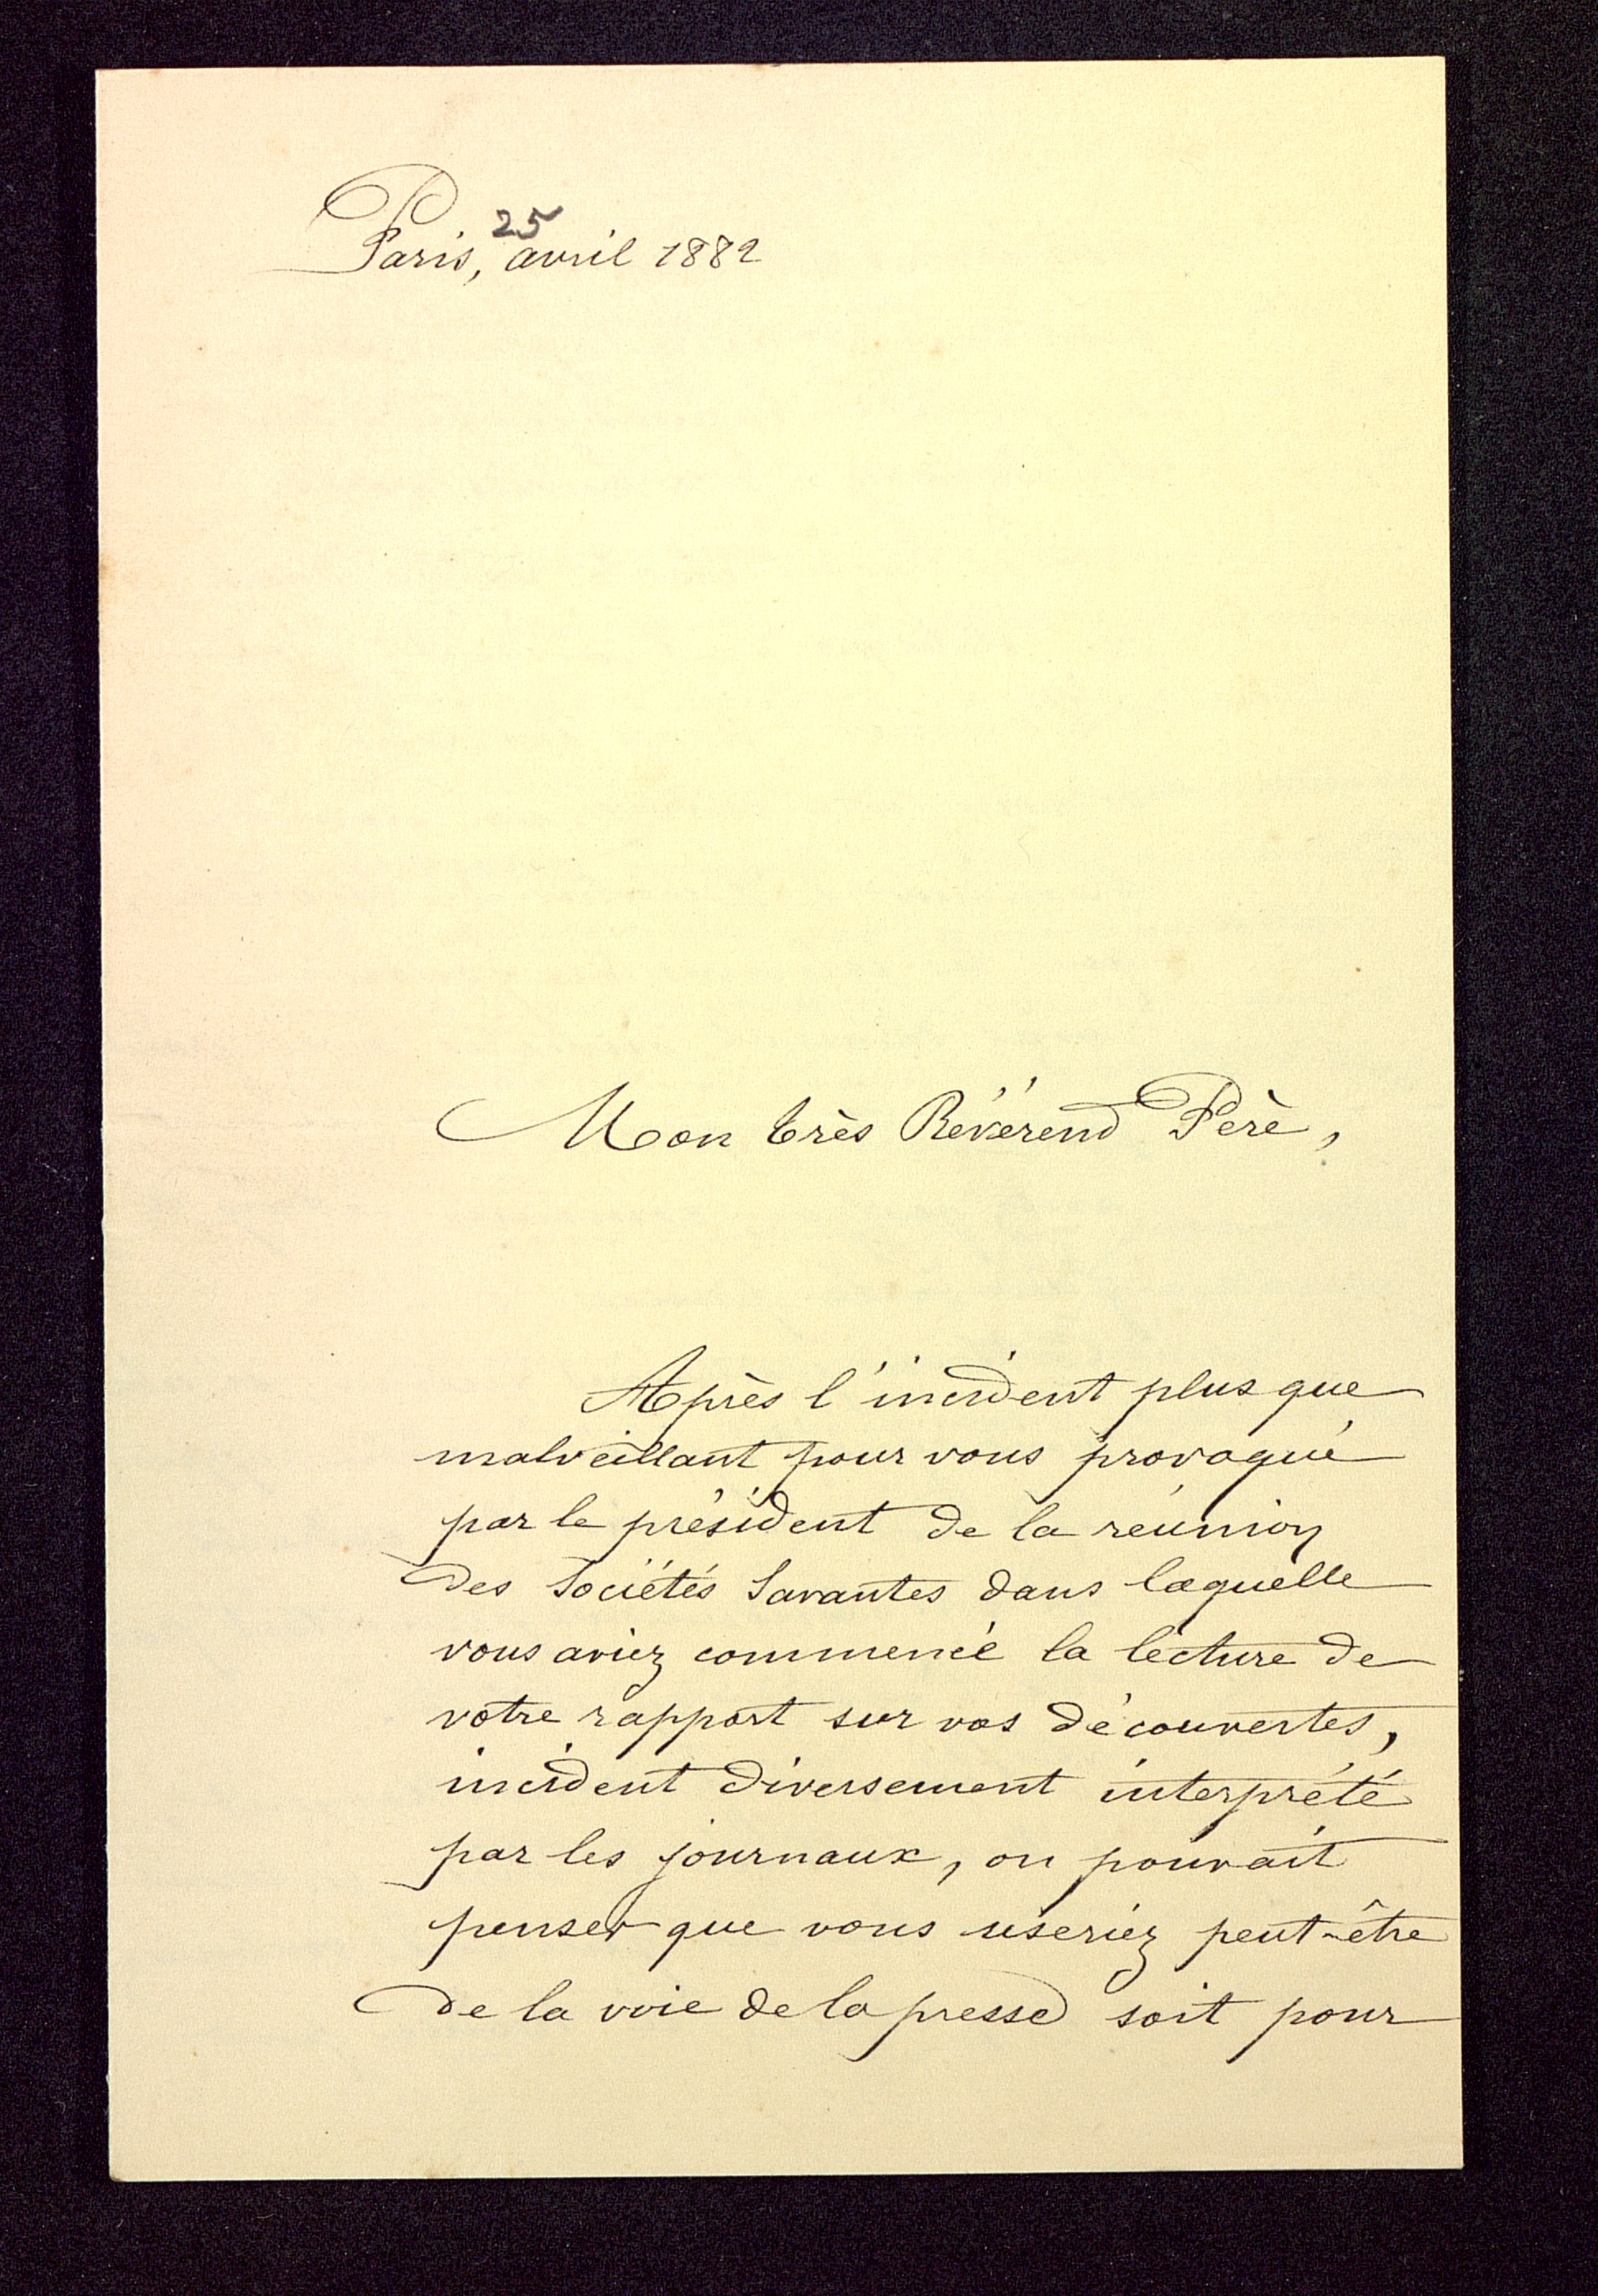 Paris, 25 avril 1882
Mon très Révérend Père,
Après l'incident plus que
malveillant pour vous provoqué
par le président de la réunion
des Sociétés Savantes dans laquelle
vous aviez commencé la lecture de
votre rapport sur vos découvertes,
incident diversement interprété
par les journaux, on pouvait
penser que vous useriez peut-être
de la voie de la presse soit pour